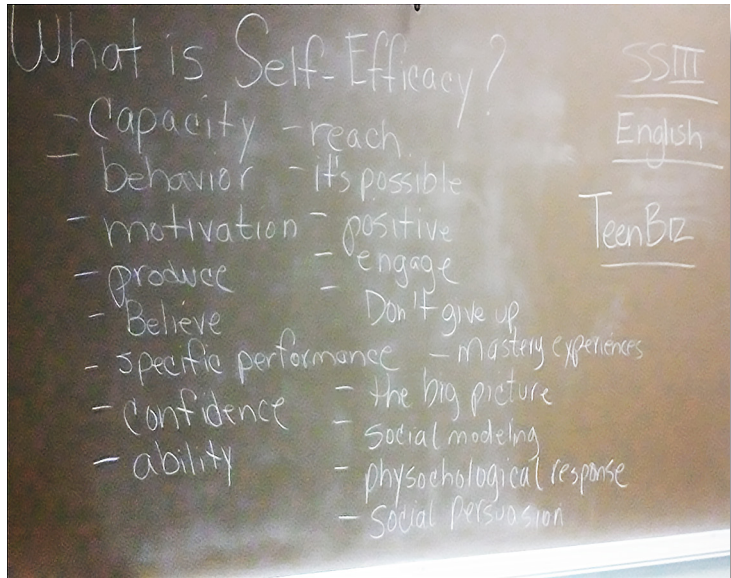 What is Self-Efficacy?
- Capacity
- behavior
- motivation
- produce
- Believe
- specific performance
- confidence
- ability
- reach
- it's possible
- positive
- engage
- Don't give up
- mastery experiences
- the big picture
- social modeling
- physochological response
- Social Persuasion
SSIII
English
TeenBiz